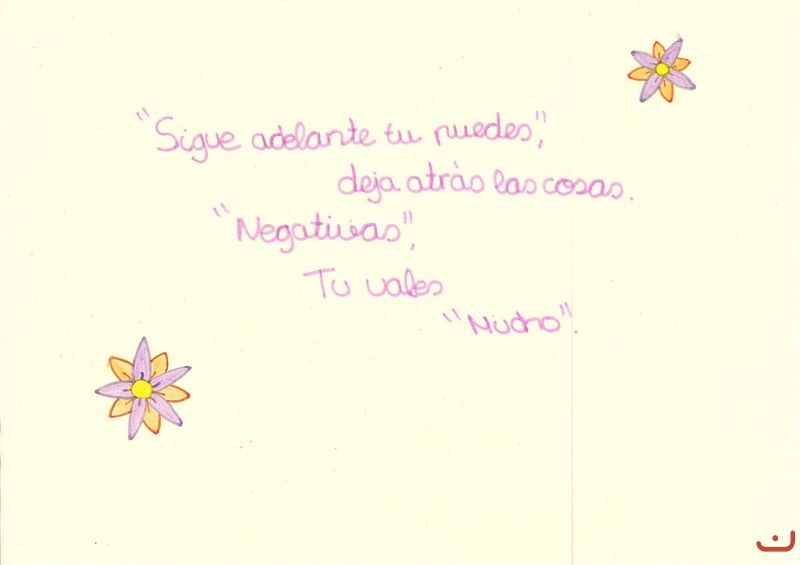 "Sigue adelante tu puedes",
deja atrás las cosas.
"Negativas",
Tu vales
"Mucho".